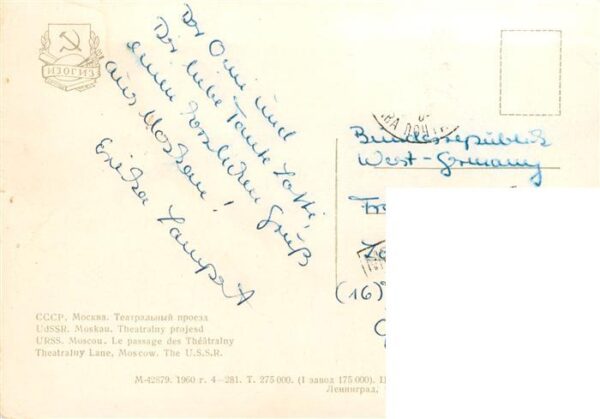 ИЗОГИЗ
Der Omi und
Dir liebe Tante Lotti,
einen herzlichen Gruß
aus Moskau!
Erika
Bundesrepublik
West-Germany
(16)
СССР. Москва. Театральный проезд
UdSSR. Moskau. Theatralny projesd
URSS. Moscou. Le passage des Théâtralny
Theatralny Lane, Moscow. The U.S.S.R.
М-42879. 1960 г. 4—281. Т. 275 000. (I завод 175 000).
Ленинград,